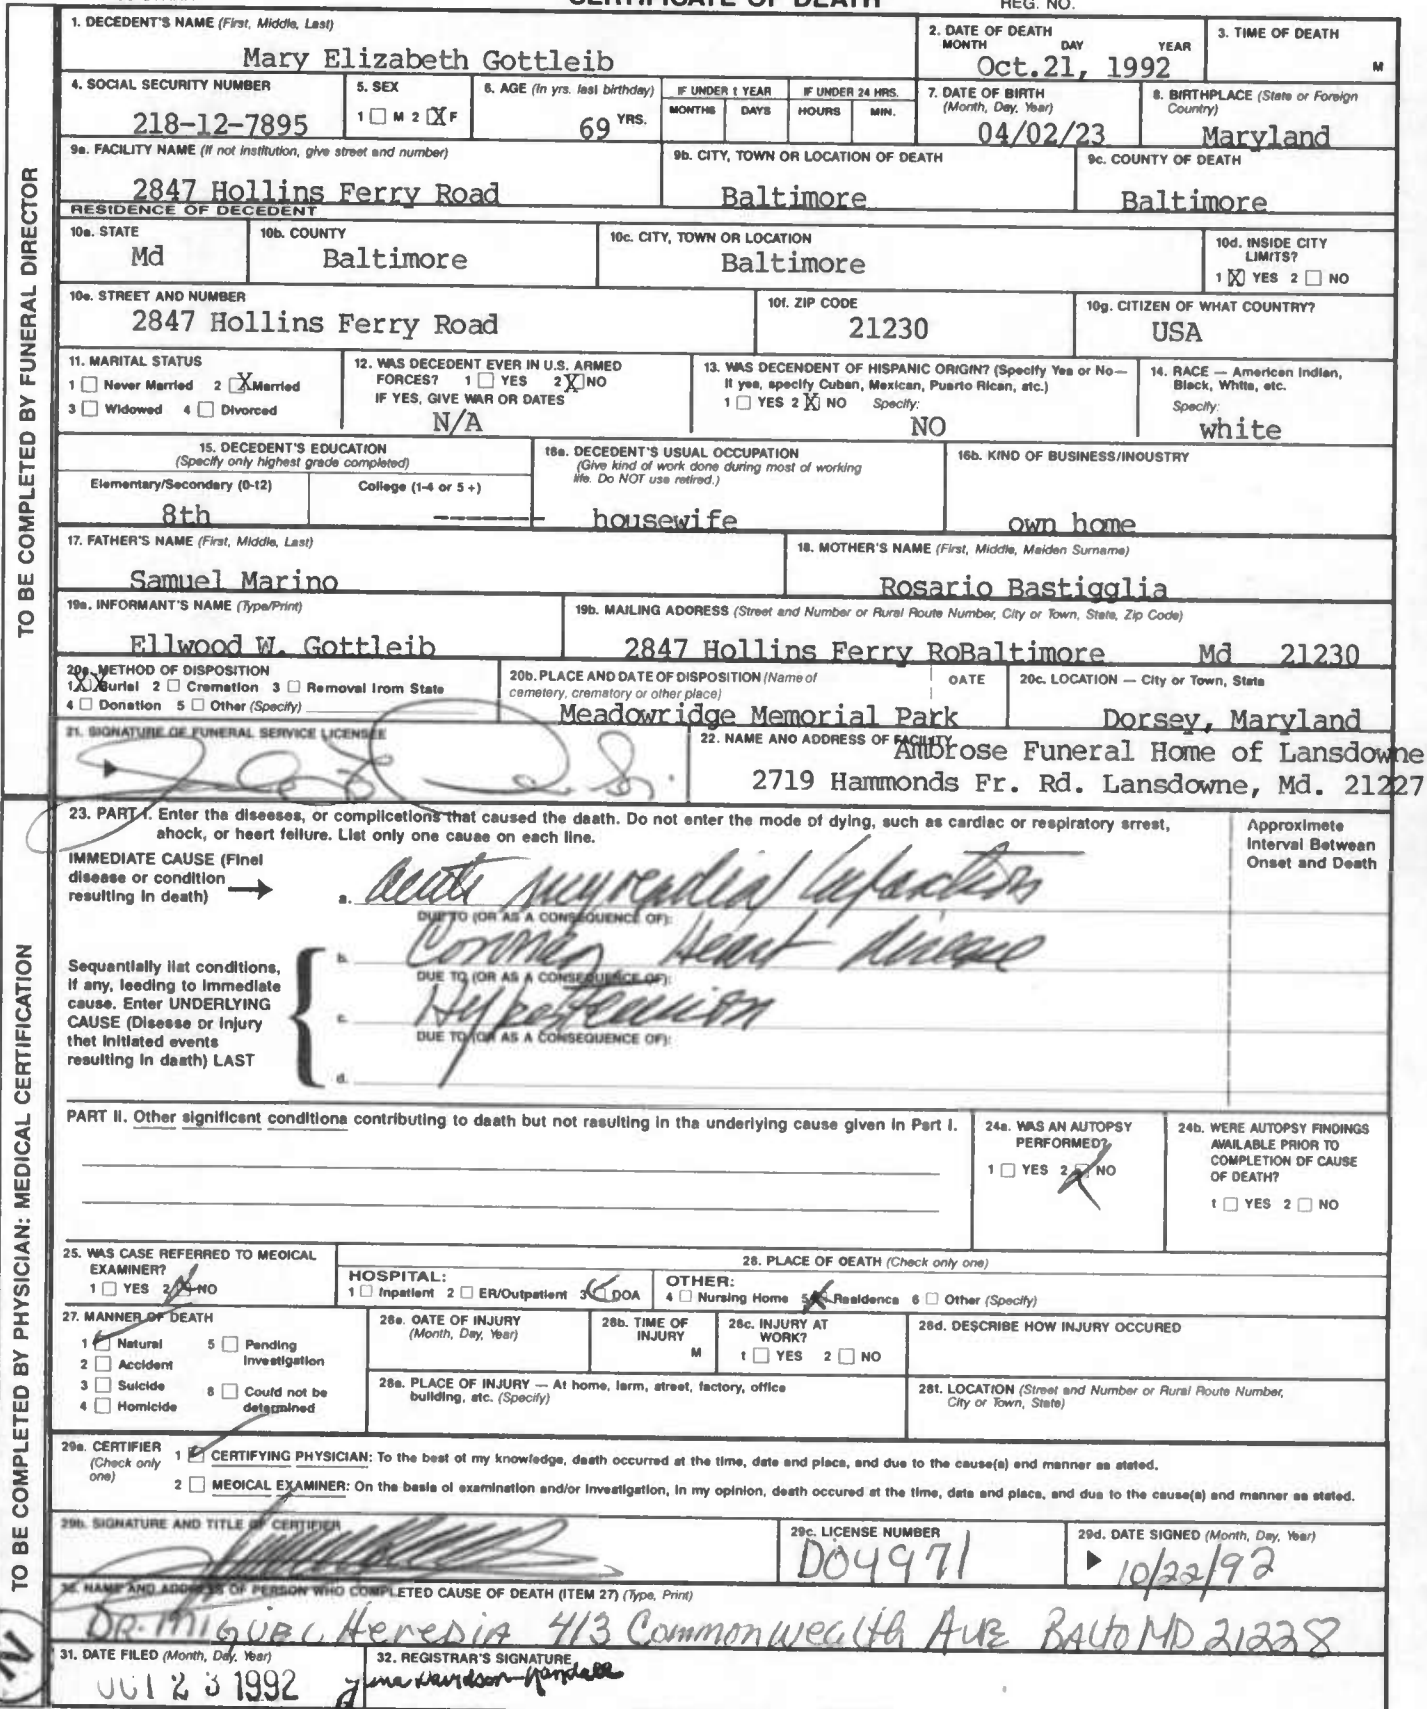 CERTIFICATE OF DEATH
REG. NO.
TO BE COMPLETED BY FUNERAL DIRECTOR
1. DECEDENT'S NAME (First, Middle, Last)
Mary Elizabeth Gottleib
2. DATE OF DEATH
MONTH DAY YEAR
Oct.21, 1992
3. TIME OF DEATH
M
4. SOCIAL SECURITY NUMBER
218-12-7895
5. SEX
1 M 2 X F
6. AGE (In yrs. last birthday)
69 YRS.
IF UNDER 1 YEAR
MONTHS DAYS
IF UNDER 24 HRS.
HOURS MIN.
7. DATE OF BIRTH
(Month, Day, Year)
04/02/23
8. BIRTHPLACE (State or Foreign
Country)
Maryland
9a. FACILITY NAME (If not institution, give street and number)
2847 Hollins Ferry Road
9b. CITY, TOWN OR LOCATION OF DEATH
Baltimore
9c. COUNTY OF DEATH
Baltimore
RESIDENCE OF DECEDENT
10a. STATE
Md
10b. COUNTY
Baltimore
10c. CITY, TOWN OR LOCATION
Baltimore
10d. INSIDE CITY
LIMITS?
1 X YES 2 NO
10e. STREET AND NUMBER
2847 Hollins Ferry Road
10f. ZIP CODE
21230
10g. CITIZEN OF WHAT COUNTRY?
USA
11. MARITAL STATUS
1 Never Married 2 X Married
3 Widowed 4 Divorced
12. WAS DECEDENT EVER IN U.S. ARMED
FORCES? 1 YES 2 X NO
IF YES, GIVE WAR OR DATES
N/A
13. WAS DECENDENT OF HISPANIC ORIGIN? (Specify Yes or No—
If yes, specify Cuban, Mexican, Puerto Rican, etc.)
1 YES 2 X NO Specify:
NO
14. RACE — American Indian,
Black, White, etc.
Specify:
white
15. DECEDENT'S EDUCATION
(Specify only highest grade completed)
Elementary/Secondary (0-12) College (1-4 or 5+)
8th --------
16a. DECEDENT'S USUAL OCCUPATION
(Give kind of work done during most of working
life. Do NOT use retired.)
housewife
16b. KIND OF BUSINESS/INDUSTRY
own home
17. FATHER'S NAME (First, Middle, Last)
Samuel Marino
18. MOTHER'S NAME (First, Middle, Maiden Surname)
Rosario Bastigglia
19a. INFORMANT'S NAME (Type/Print)
Ellwood W. Gottleib
19b. MAILING ADDRESS (Street and Number or Rural Route Number, City or Town, State, Zip Code)
2847 Hollins Ferry RoBaltimore Md 21230
20a. METHOD OF DISPOSITION
1 XX Burial 2 Cremation 3 Removal from State
4 Donation 5 Other (Specify)
20b. PLACE AND DATE OF DISPOSITION (Name of
cemetery, crematory or other place)
DATE
Meadowridge Memorial Park
20c. LOCATION — City or Town, State
Dorsey, Maryland
21. SIGNATURE OF FUNERAL SERVICE LICENSEE
22. NAME AND ADDRESS OF FACILITY
Ambrose Funeral Home of Lansdowne
2719 Hammonds Fr. Rd. Lansdowne, Md. 21227
TO BE COMPLETED BY PHYSICIAN: MEDICAL CERTIFICATION
23. PART I. Enter the diseases, or complications that caused the death. Do not enter the mode of dying, such as cardiac or respiratory arrest,
shock, or heart failure. List only one cause on each line.
Approximate
Interval Between
Onset and Death
IMMEDIATE CAUSE (Final
disease or condition
resulting in death)
a. acute myocardial Infarction
DUE TO (OR AS A CONSEQUENCE OF):
b. Coronary Heart disease
DUE TO (OR AS A CONSEQUENCE OF):
c. Hypertension
DUE TO (OR AS A CONSEQUENCE OF):
d.
Sequentially list conditions,
if any, leading to immediate
cause. Enter UNDERLYING
CAUSE (Disease or injury
that initiated events
resulting in death) LAST
PART II. Other significant conditions contributing to death but not resulting in the underlying cause given in Part I.
24a. WAS AN AUTOPSY
PERFORMED?
1 YES 2 X NO
24b. WERE AUTOPSY FINDINGS
AVAILABLE PRIOR TO
COMPLETION OF CAUSE
OF DEATH?
1 YES 2 NO
25. WAS CASE REFERRED TO MEDICAL
EXAMINER?
1 YES 2 X NO
26. PLACE OF DEATH (Check only one)
HOSPITAL:
1 Inpatient 2 ER/Outpatient 3 DOA
OTHER:
4 Nursing Home 5 X Residence 6 Other (Specify)
27. MANNER OF DEATH
1 Natural 5 Pending
Investigation
2 Accident
3 Suicide 6 Could not be
determined
4 Homicide
28a. DATE OF INJURY
(Month, Day, Year)
28b. TIME OF
INJURY
M
28c. INJURY AT
WORK?
1 YES 2 NO
28d. DESCRIBE HOW INJURY OCCURED
28e. PLACE OF INJURY — At home, farm, street, factory, office
building, etc. (Specify)
28f. LOCATION (Street and Number or Rural Route Number,
City or Town, State)
29a. CERTIFIER
(Check only
one)
1 CERTIFYING PHYSICIAN: To the best of my knowledge, death occurred at the time, date and place, and due to the cause(s) and manner as stated.
2 MEDICAL EXAMINER: On the basis of examination and/or investigation, in my opinion, death occured at the time, date and place, and due to the cause(s) and manner as stated.
29b. SIGNATURE AND TITLE OF CERTIFIER
29c. LICENSE NUMBER
D04971
29d. DATE SIGNED (Month, Day, Year)
10/22/92
30. NAME AND ADDRESS OF PERSON WHO COMPLETED CAUSE OF DEATH (ITEM 27) (Type, Print)
DR. MIGUEL Heredia 413 Commonwealth Ave BALTO MD 21228
31. DATE FILED (Month, Day, Year)
OCT 23 1992
32. REGISTRAR'S SIGNATURE
Davidson-Randall